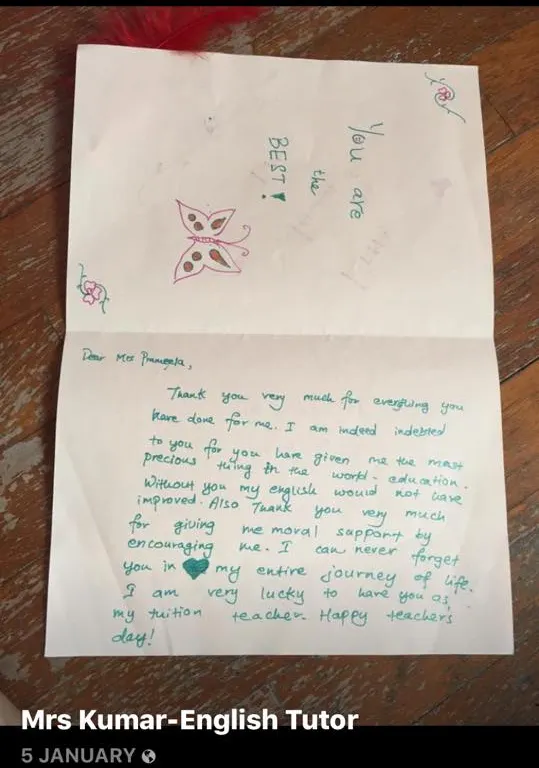 You are
the
BEST!
Dear Mrs Prameela,
Thank you very much for everything you
have done for me. I am indeed indebted
to you for you have given me the most
precious thing in the world - education.
Without you my english would not have
improved. Also Thank you very much
for giving me moral support by
encouraging me. I can never forget
you in my entire journey of life.
I am very lucky to have you as
my tuition teacher. Happy teacher's
day!
Mrs Kumar-English Tutor
5 JANUARY